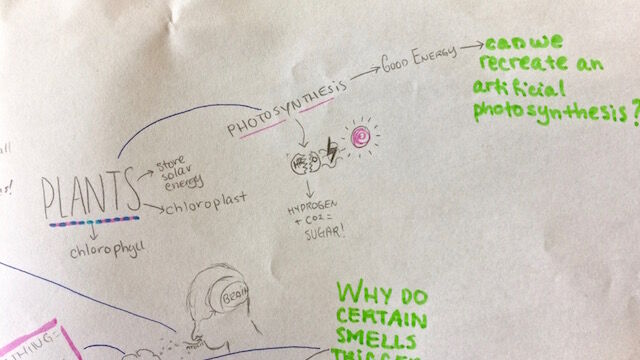 PHOTOSYNTHESIS
GOOD ENERGY
can we
recreate an
artificial
photosynthesis?
PLANTS
store
solar
energy
chloroplast
chlorophyll
HYDROGEN
+ CO2 =
SUGAR!
BRAIN
WHY DO
CERTAIN
SMELLS
TRIGGER